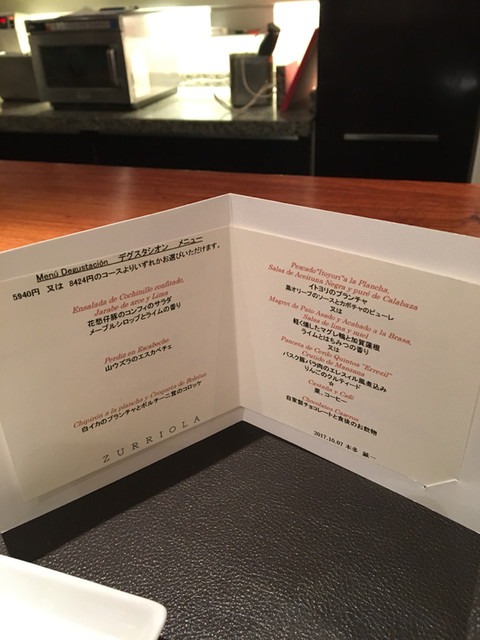 Menú Degustación デグスタシオン メニュー
5940円 又は 8424円のコースよりいずれかお選びいただけます。
Ensalada de Cochinillo confitado,
Jarabe de arce y Lima
花悠仔豚のコンフィのサラダ
メープルシロップとライムの香り
Perdiz en Escabeche
山ウズラのエスカベチェ
Chipirón a la plancha y Croqueta de Boletus
白イカのプランチャとポルチーニ茸のコロッケ
ZURRIOLA
Pescado"Itoyori"a la Plancha,
Salsa de Aceituna Negra y puré de Calabaza
イトヨリのプランチャ
黒オリーブのソースとカボチャのピューレ
又は
Magret de Pato Asado y Acabado a la Brasa,
Salsa de lima y miel
軽く燻したマグレ鴨と加賀蓮根
ライムとはちみつの香り
又は
Panceta de Cerdo Quintoa "Errezil"
Crutido de Manzana
バスク豚バラ肉のエレスイル風煮込み
りんごのクルティード
☆
Castaña y Café
栗、コーヒー
Chocolates Caseros
自家製チョコレートと食後のお飲物
2017.10.07 本多 誠一